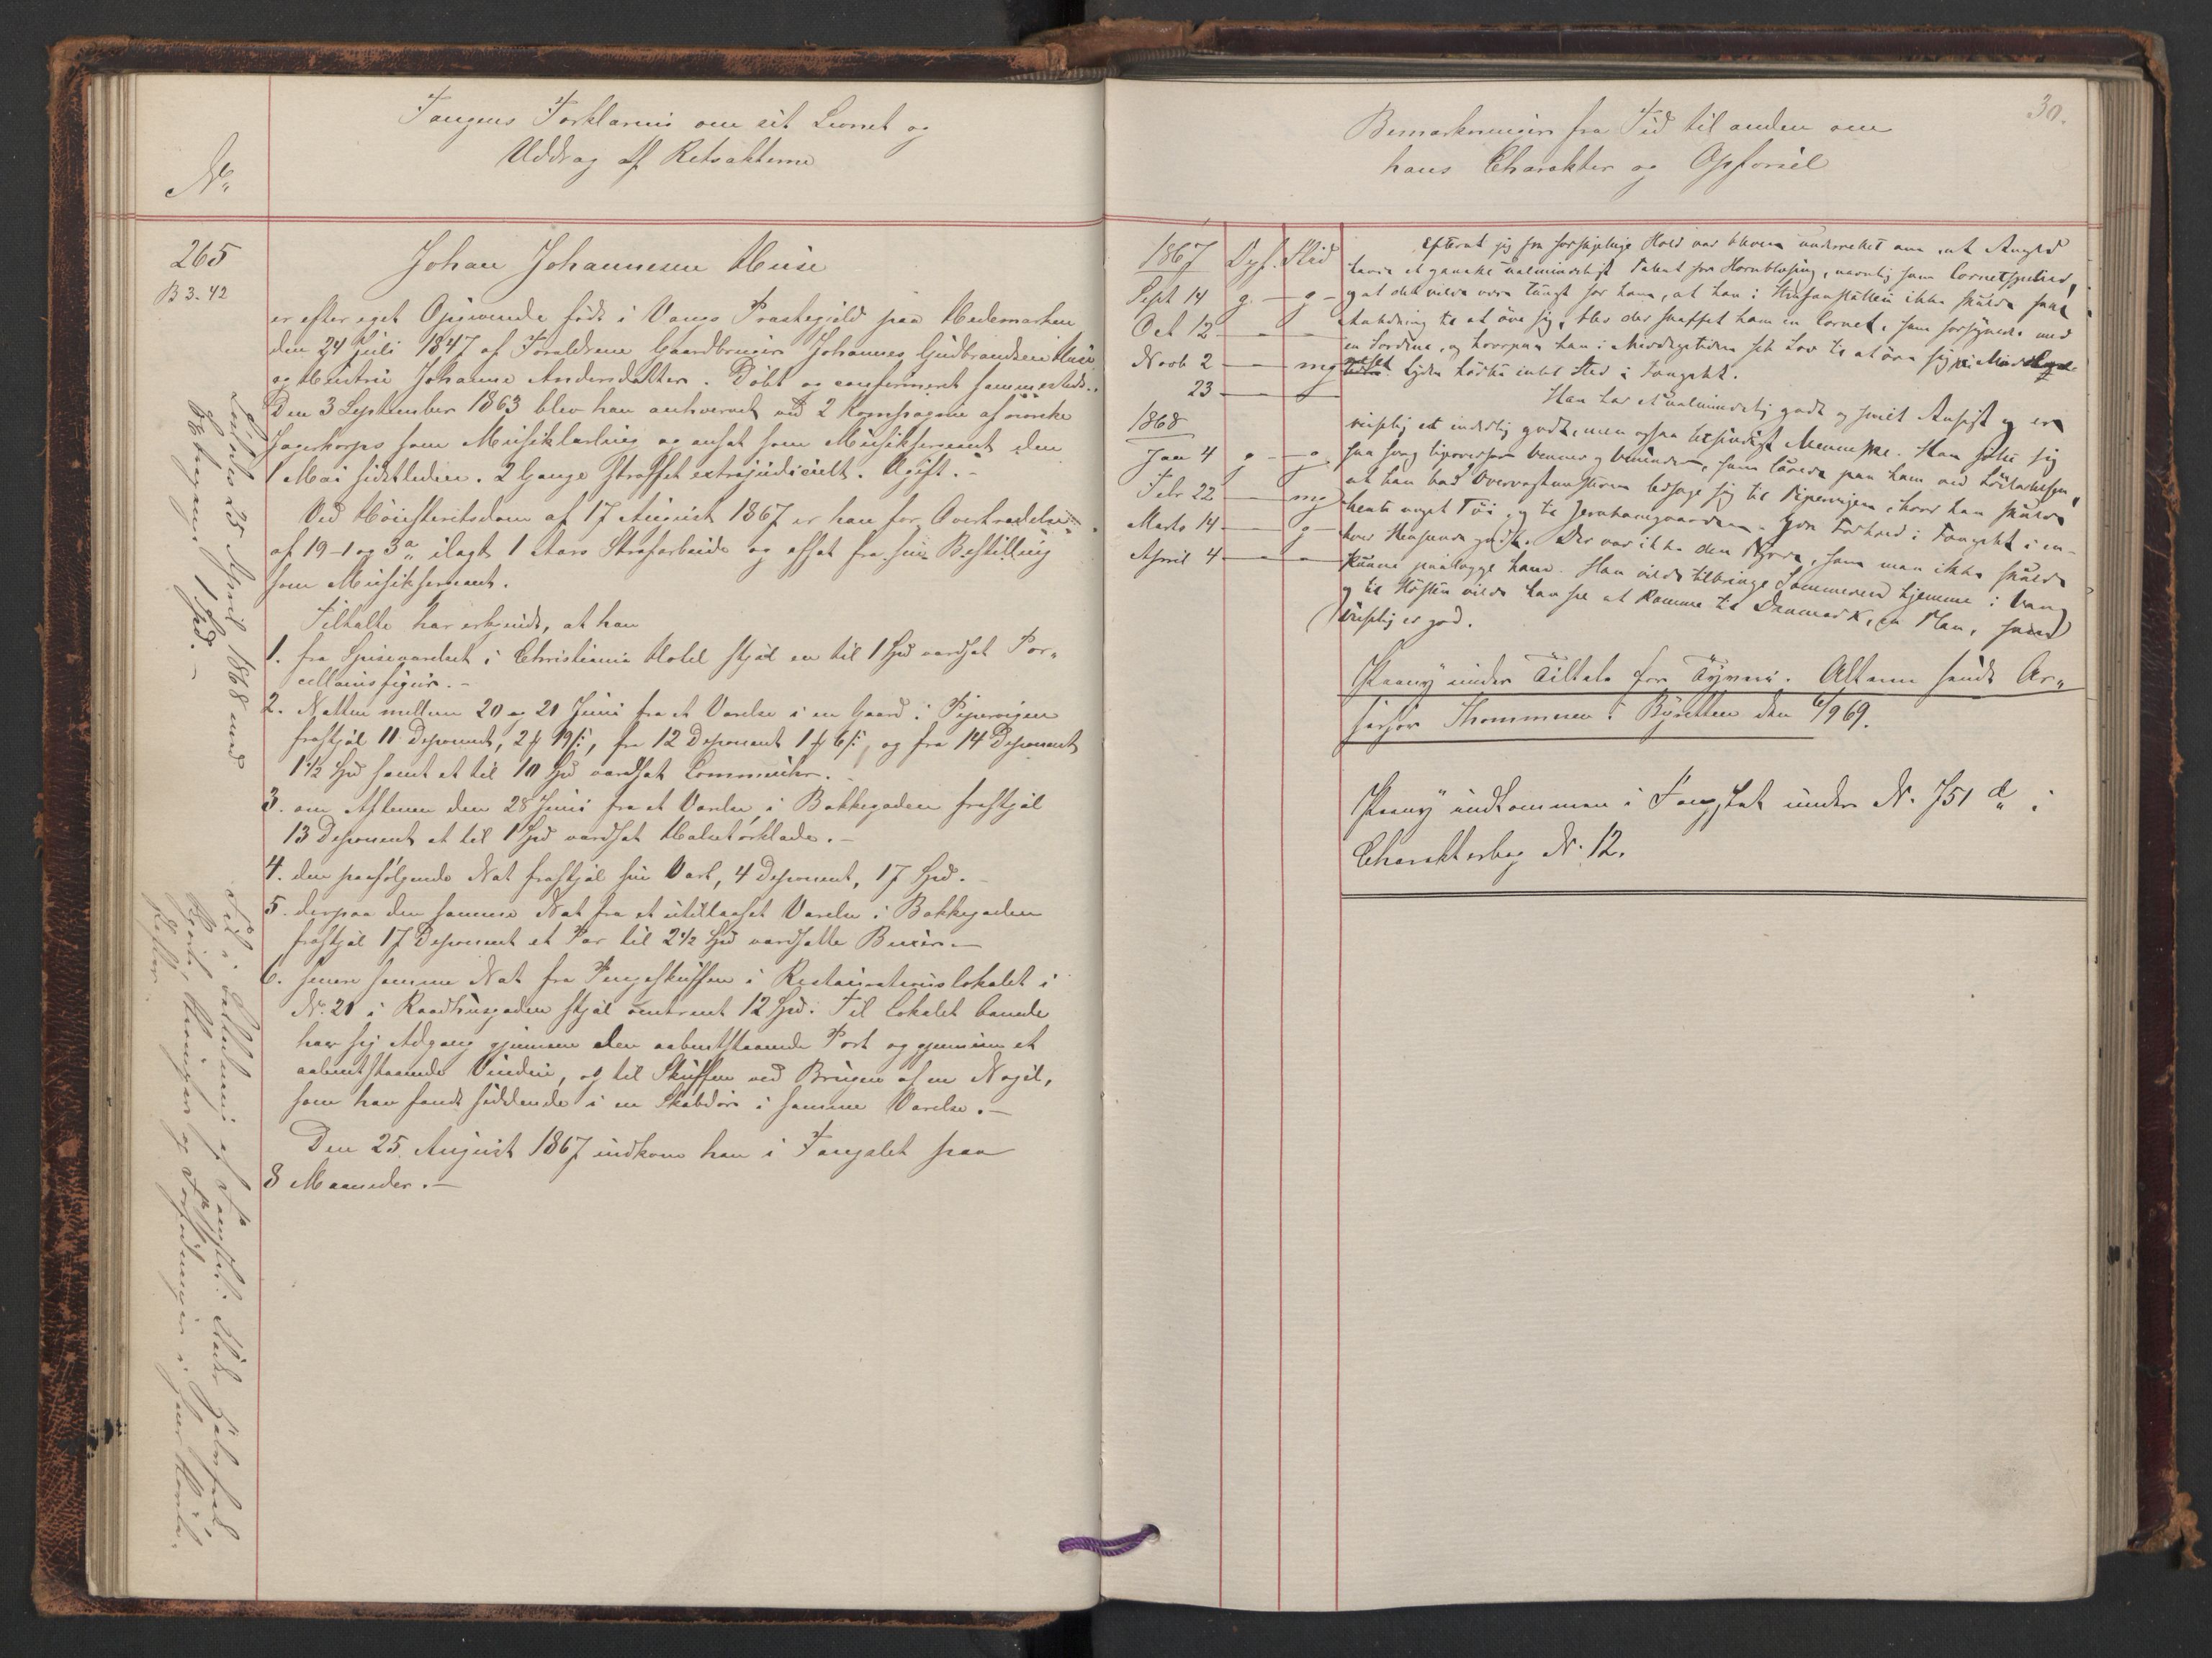 Fangens Forklaring om sit Levnet og
Uddrag af Retsakterne
No
265
B 3. 42
Johan Johannesen Huse
er efter eget Opgivende født i Vangs Præstegjeld paa Hedemarken
den 24 Juli 1847 af Forældrene Gaardbruger Johannes Gudbrandsen Huse
og Hustru Johanne Andersdatter. Døbt og confirmeret sammesteds.
Den 3 September 1863 blev han anhvervet ved 2 Kompagnie af norske
Jægerkorps som Musiklærling og ansat som Musiksergeant den
1 Mai sidstleden. 2 Gange straffet extrajudicielt. Ugift. -
Ved Høiesteretsdom af 17 August 1867 er han for Overtrædelse
af 19-1 og 3 a, ilagt 1 Aars Strafarbeide og afsat fra sin Bestilling
som Musiksergeant.
Tiltalte har erkjendt, at han
1. fra Spiseværelset i Christiania Hotel stjal en til 1 Spd værdsat Por-
cellainsfigur. -
2. Natten mellem 20 og 21 Juni fra et Værelse i en Gaard i Pipervigen
frastjal 11 Deponent, 2 19 ß, fra 12 Deponent 1 6 ß, og fra 14 Deponent
1 1/2 Spd samt et til 10 Spd værdsat Lommeuhr. -
3. om Aftenen den 28 Juni fra et Værelse i Bakkegaden frastjal
13 Deponent et til 1 Spd værdsat Halstørklæde. -
4. den paafølgende Nat frastjal sin Vært, 4 Deponent, 17 Spd. -
5. derpaa den samme Nat fra et utillaaset Værelse i Bakkegaden
frastjal 17 Deponent et Par til 2 1/2 Spd værdsatte Buxer. -
6. senere samme Nat fra Pengeskuffen i Restaurationslokalet i
No. 21 i Raadhusgaden stjal omtrent 12 Spd. Til Lokalet banede
han sig Adgang gjennem den aabentstaaende Port og gjennem et
aabentstaaende Vindue, og til Skuffen ved Brugen af en Nøgel,
som han fandt siddende i en Skabdør i samme Værelse. -
Den 25. August 1867 indkom han i Fangslet paa
8 Maaneder. -
Løsladt 25 April 1868 med
Betragens 1 Spd. -
30.
Bemærkninger fra Tid til anden om
hans Charakter og Opførsel
1867 Opf. Flid
Sept 14 g. - g -
Oct 12
Novb 2 mg
23
1868
Jan 4 g - g
Febr 22 mg
Marts 14 g
April 4
Efterat jeg fra forskjellige Hold var bleven underrettet om, at Angjed
havde et ganske ualmindeligt Talent for Hornblæsing, navnlig som Cornetspiller,
og at det vilde være tungt for ham, at han i Strafanstalten ikke skulde faae
Anledning til at øve sig, blev der skaffet ham en Cornet, som forsynedes med
en Sordine, og hvorpaa han i Middagstiden fik Lov til at øve sig
Lyden hørtes intet Sted i Fangslet.
Han har et ualmindelig godt og smilt Ansigt og er
vistnok et inderlig godt, men ogsaa letsindigt Menneske. Han følte sig
saa svag ligeoverfor Venner og Veninder, som lurede paa ham ved Løsladelsen,
at han bad Overvagtmesteren ledsage sig til Pipervigen, hvor han skulde
hente noget Tøi, og til Jernbanegaarden. Hans Forhold i Fangslet i en-
hver Henseende godt. Der var ikke den Byrde, som man ikke skulde
kunne paalægge ham. Han vilde tilbringe Sommeren hjemme i Vang
og til Høsten vilde han see at komme til Danmark, en Plan, som
vistnok er god.
Paany under Tiltale for Tyveri. Akterne sendt As-
sessor Thommesen i Byretten den 6/9 69.
Paany indkommen i Fangslet under No. 751 d i
Charakterbog No. 12.